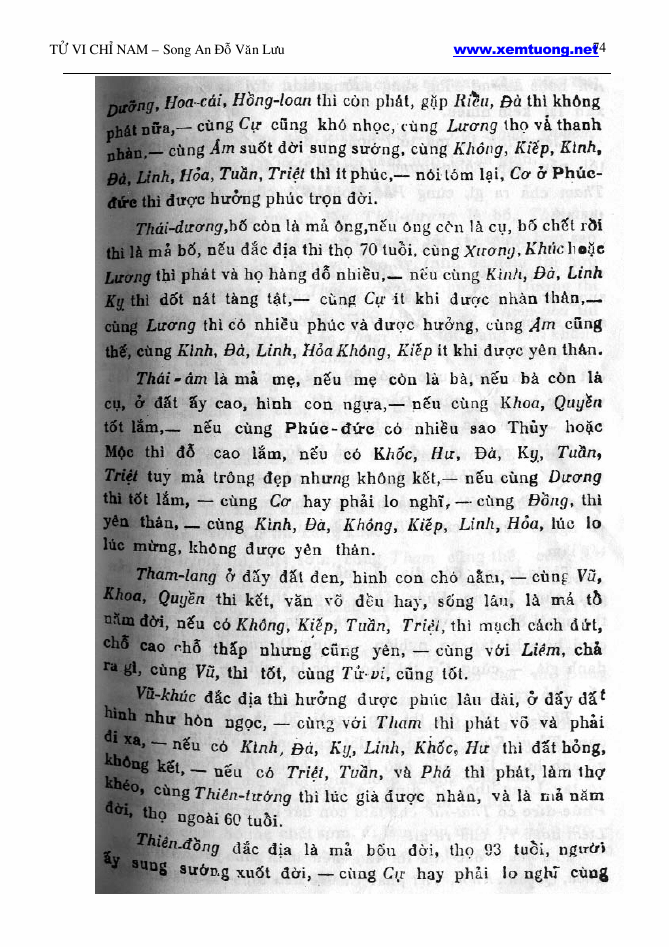 TỬ VI CHỈ NAM – Song An Đỗ Văn Lưu www.xemtuong.net 74
Dưỡng, Hoa-cái, Hồng-loan thì còn phát, gặp Riêu, Đà thì không
phát nữa,— cùng Cự cũng khó nhọc, cùng Lương thọ và thanh
nhàn,— cùng Âm suốt đời sung sướng, cùng Không, Kiếp, Kình,
Đà, Linh, Hỏa, Tuần, Triệt thì ít phúc,— nói tóm lại, Cơ ở Phúc-
đức thì được hưởng phúc trọn đời.
Thái-dương,bố còn là mả ông,nếu ông còn là cụ, bố chết rồi
thì là mả bố, nếu đắc địa thì thọ 70 tuổi. cùng Xương, Khúc hoặc
Lương thì phát và họ hàng đỗ nhiều,— nếu cùng Kình, Đà, Linh
Kỵ thì dốt nát tàng tật,— cùng Cự ít khi được nhàn thân,—
cùng Lương thì có nhiều phúc và được hưởng, cùng Âm cũng
thế, cùng Kình, Đà, Linh, Hỏa Không, Kiếp ít khi được yên thân.
Thái-âm là mả mẹ, nếu mẹ còn là bà, nếu bà còn là
cụ, ở đất ấy cao, hình con ngựa,— nếu cùng Khoa, Quyền
tốt lắm,— nếu cùng Phúc-đức có nhiều sao Thủy hoặc
Mộc thì đỗ cao lắm, nếu có Khốc, Hư, Đà, Kỵ, Tuần,
Triệt tuy mả trông đẹp nhưng không kết,— nếu cùng Dương
thì tốt lắm, — cùng Cơ hay phải lo nghĩ, — cùng Đồng, thì
yên thân, — cùng Kình, Đà, Không, Kiếp, Linh, Hỏa, lúc lo
lúc mừng, không được yên thân.
Tham-lang ở đấy đất đen, hình con chó nằm, — cùng Vũ,
Khoa, Quyền thì kết, văn võ đều hay, sống lâu, là mả tổ
năm đời, nếu có Không, Kiếp, Tuần, Triệt, thì mạch cách đứt,
chỗ cao chỗ thấp nhưng cũng yên, — cùng với Liêm, chả
ra gì, cùng Vũ, thì tốt, cùng Tử-vi, cũng tốt.
Vũ-khúc đắc địa thì hưởng được phúc lâu dài, ở đấy đất
hình như hòn ngọc, — cùng với Tham thì phát võ và phải
đi xa, — nếu có Kình, Đà, Kỵ, Linh, Khốc, Hư thì đất hỏng,
không kết, — nếu có Triệt, Tuần, và Phá thì phát, làm thợ
khéo, cùng Thiên-tướng thì lúc già được nhàn, và là mả năm
đời, thọ ngoài 60 tuổi.
Thiên-đồng đắc địa là mả bốn đời, thọ 93 tuổi, người
ấy sung sướng xuốt đời, — cùng Cự hay phải lo nghĩ cùng